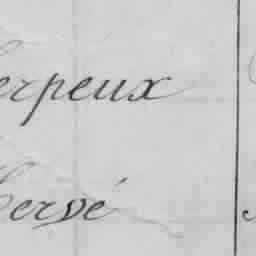 erpeux
hervé